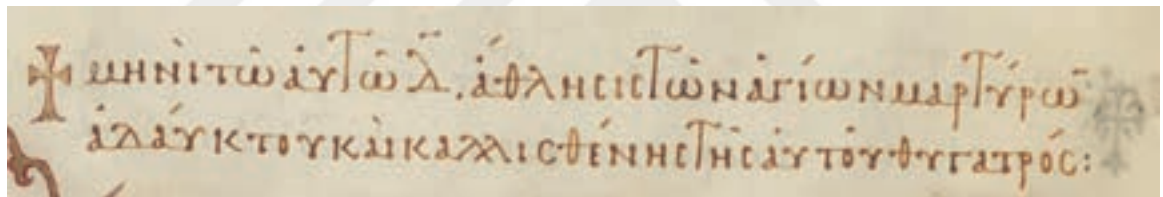 ☩ μηνὶ τῶ ἀυτῶ δ̅, ἄθλησις τῶν ἁγίων μαρτύρω̅
ἀδάυκτου καὶ καλλισθένης τῆς ἀυτοῦ θυγατρός: